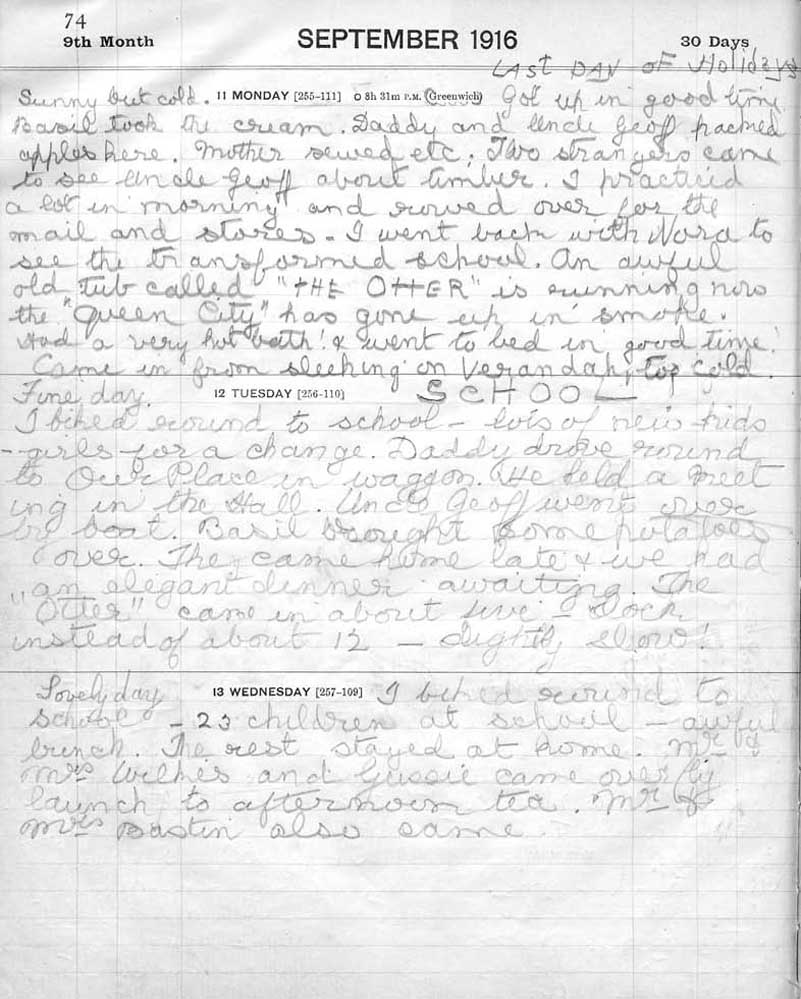 74
9th Month SEPTEMBER 1916 30 Days
LAST DAY OF Holidays
Sunny but cold. 11 MONDAY [255-111] O 8h 31m P.M. (Greenwich) Got up in good time
Basil took the cream. Daddy and Uncle Geoff packed
apples here. Mother sewed etc. Two strangers came
to see Uncle Geoff about timber. I practiced
a lot in morning and rowed over for the
mail and stores. I went back with Nora to
see the transformed school. An awful
old tub called "THE OTTER" is running now
the "Queen City" has gone up in smoke.
Had a very hot bath! & went to bed in good time!
Came in from sleeping on Verandah, too cold.
Fine day. 12 TUESDAY [256-110] SCHOOL
I biked round to school - lots of new kids
- girls for a change. Daddy drove round
to Our Place in waggon. He held a meet
ing in the Hall. Uncle Geoff went over
by boat. Basil brought some potatoes
over. They came home late & we had
an elegant dinner awaiting. The
"Otter" came in about five - Ock
instead of about 12 - slightly slow!
Lovely day 13 WEDNESDAY [257-109] I biked round to
school - 23 children at school - awful
bunch. The rest stayed at home. Mr &
Mrs Wilkes and Gussie came over by
launch to afternoon tea. Mr &
Mrs Bastin also came.